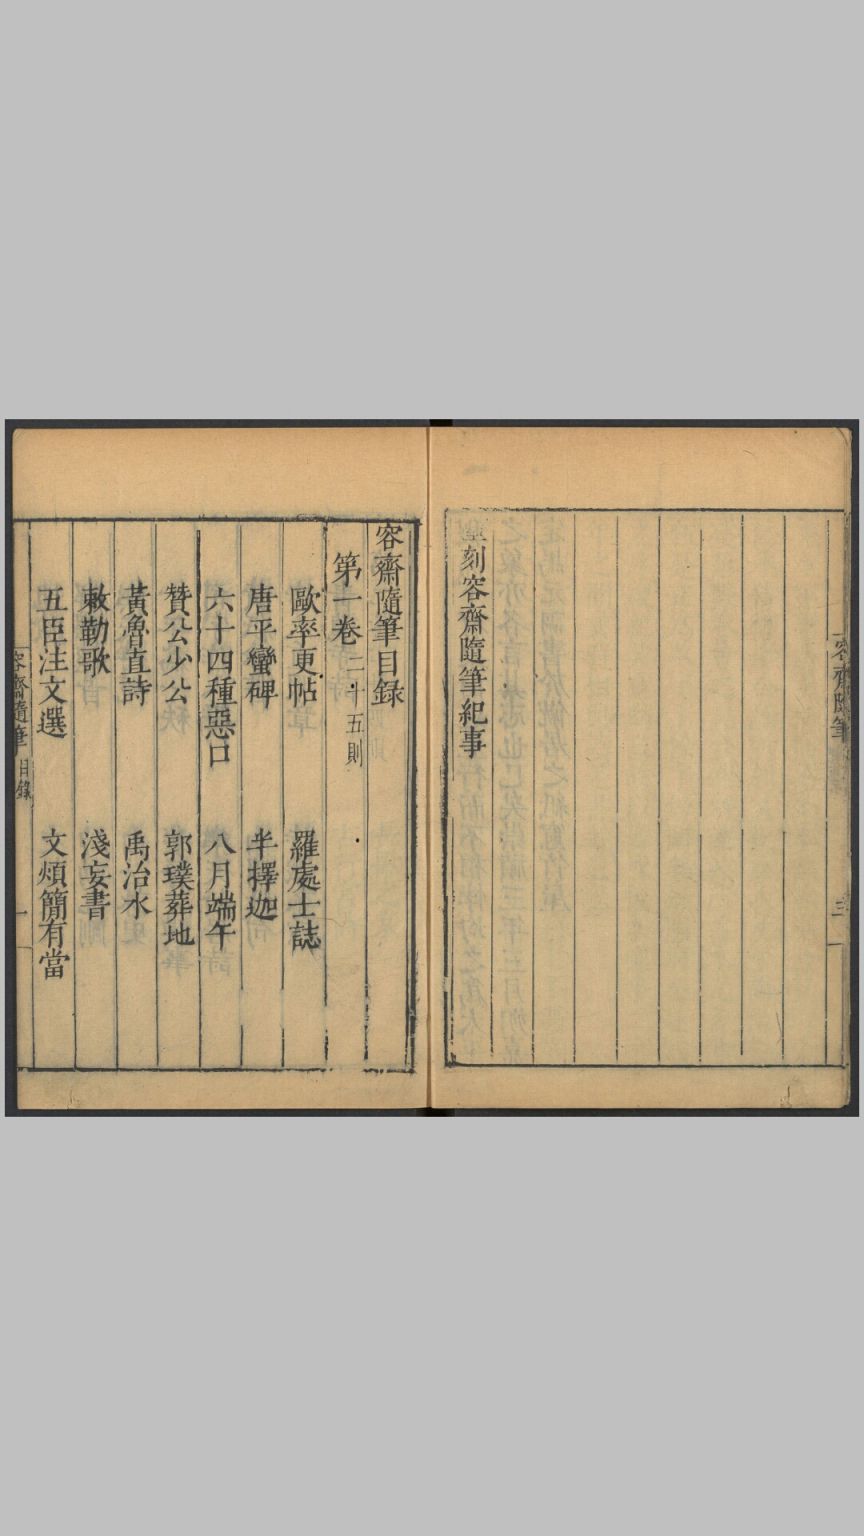 重刻容齋隨筆紀事
容齋隨筆
三
容齋隨筆目録
第一卷 二十五則
歐率更帖 羅處士誌
唐平蠻碑 半擇迦
六十四種惡口 八月端午
贊公少公 郭璞葬地
黃魯直詩 禹治水
敕勒歌 淺妄書
五臣注文選 文煩簡有當
容齋隨筆 目錄
一